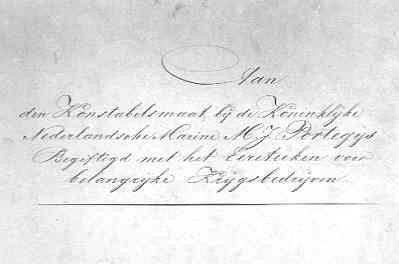 Aan
den Konstabelsmaat, bij de Koninklijke
Nederlandsche Marine M J Portegijs
Begiftigd met het Eereteeken voor
belangryke Krijgsbedrijven.